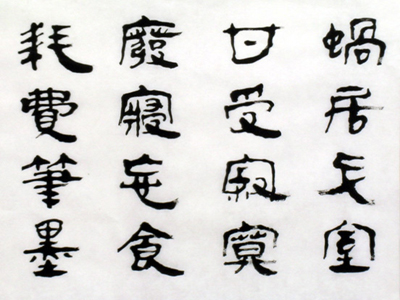 蝸居斗室
甘受寂寞
廢寢忘食
耗費筆墨